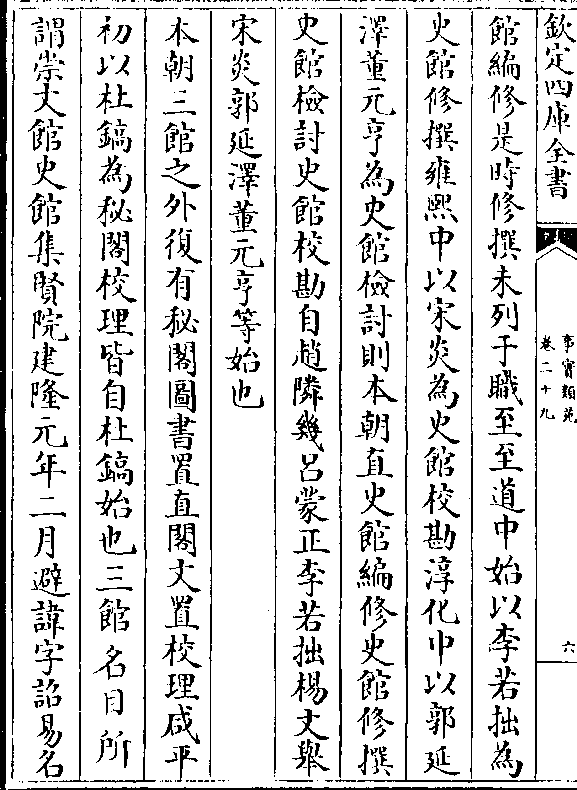 欽定四庫全書
事實類苑
卷二十九
六
館編修是時修撰未列于職至至道中始以李若拙為
史館修撰雍熙中以宋炎為史館校勘淳化中以郭延
澤董元亨為史館檢討則本朝直史館編修史館修撰
史館檢討史館校勘自趙隣幾呂蒙正李若拙楊文舉
宋炎郭延澤董元亨等始也
本朝三館之外復有秘閣圖書置直閣文置校理咸平
初以杜鎬為秘閣校理皆自杜鎬始也三館名目所
謂崇文館史館集賢院建隆元年二月避諱字詔易名